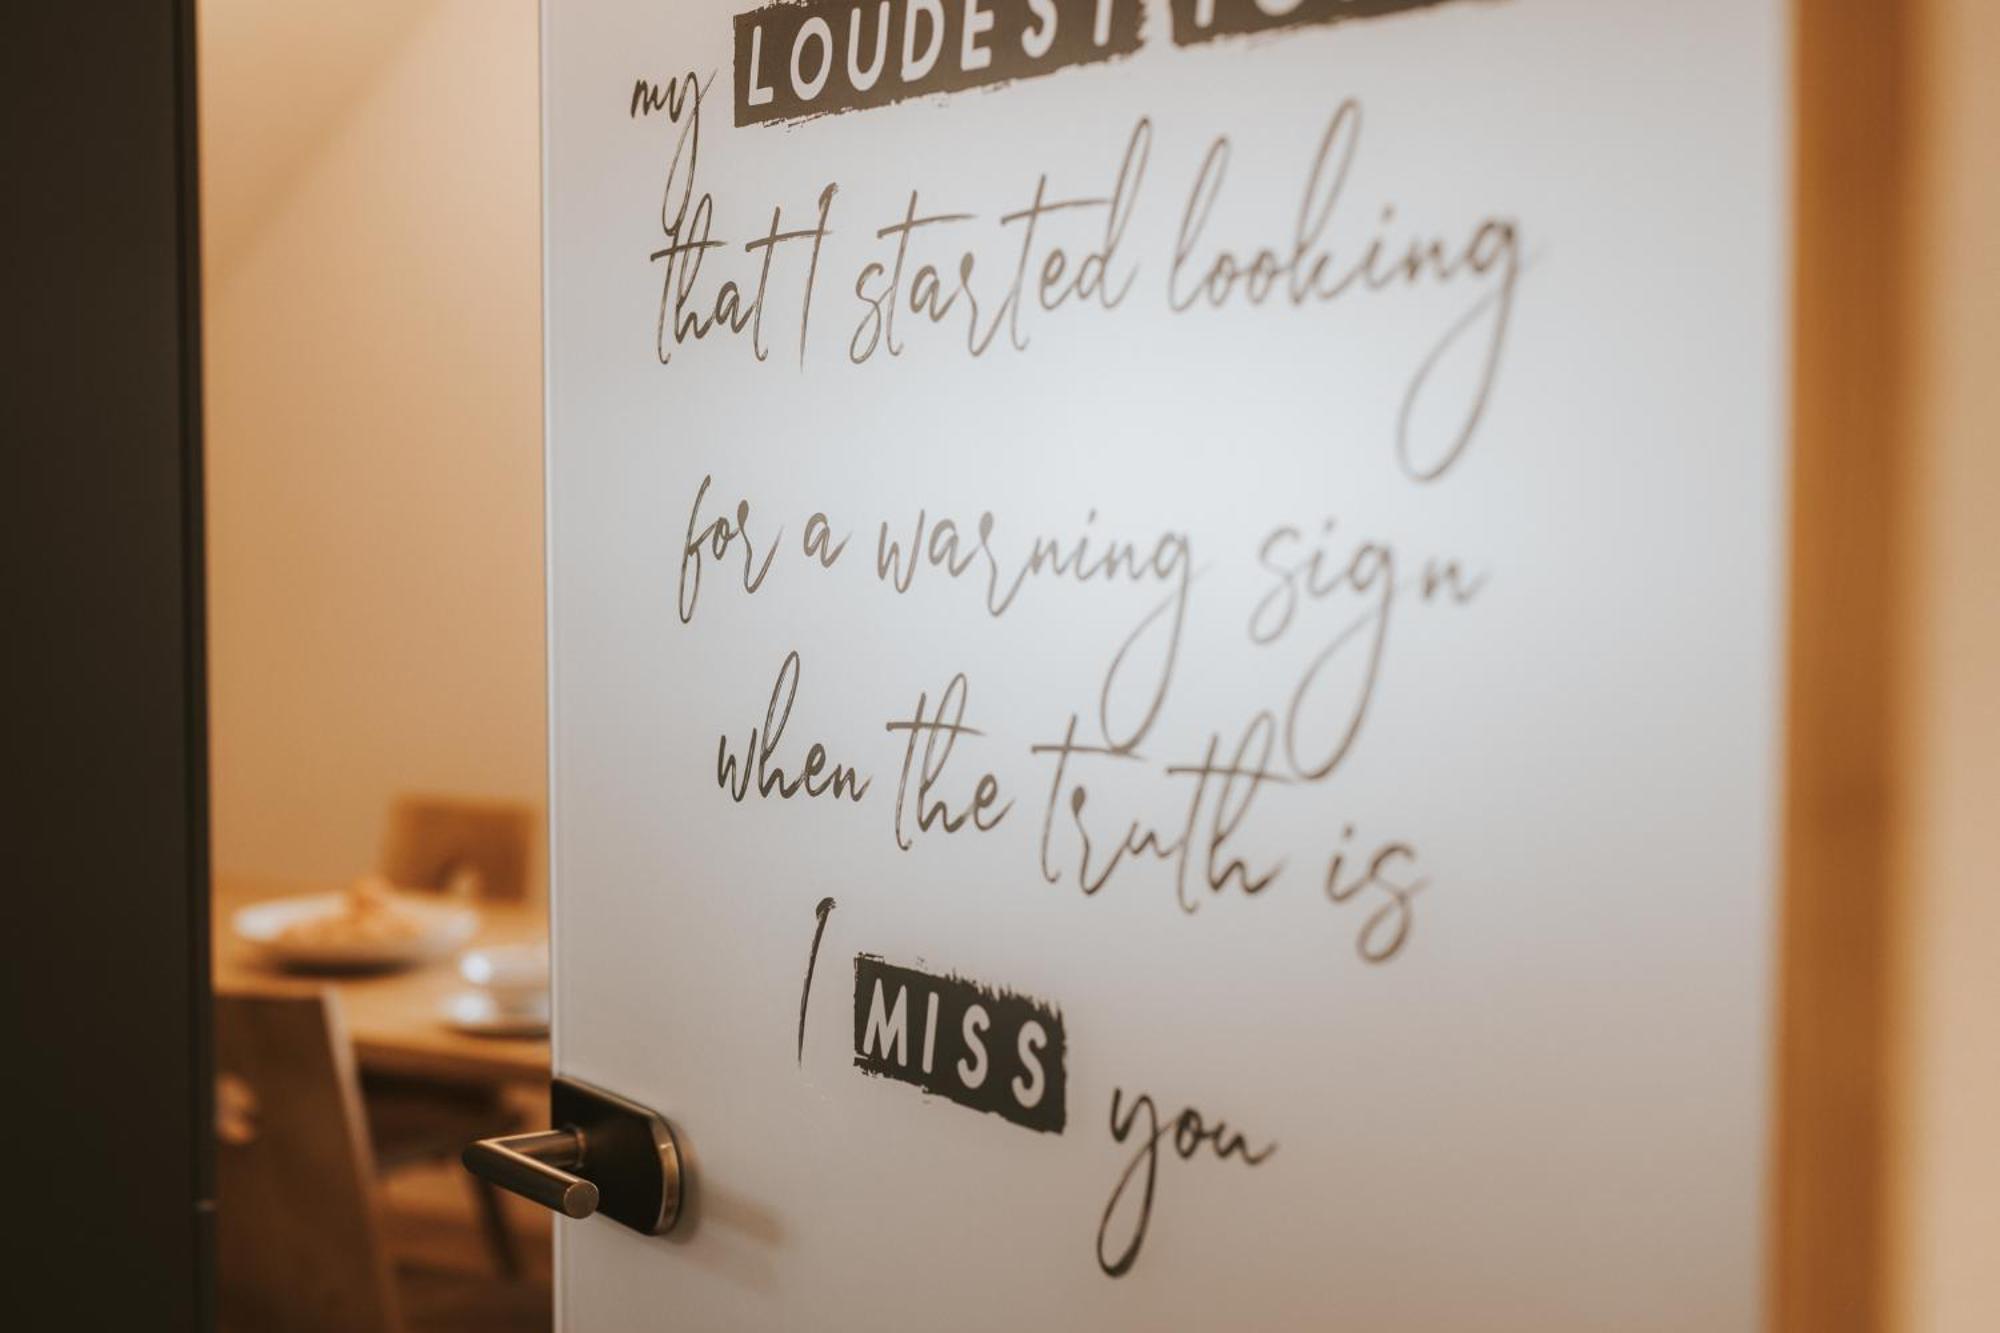 my LOUDEST
that I started looking
for a warning sign
when the truth is
I MISS you